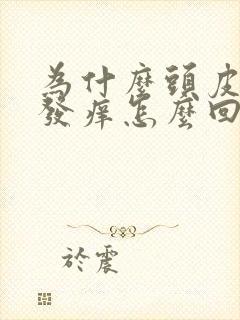 為什麼頭皮
發癢怎麼回
於震